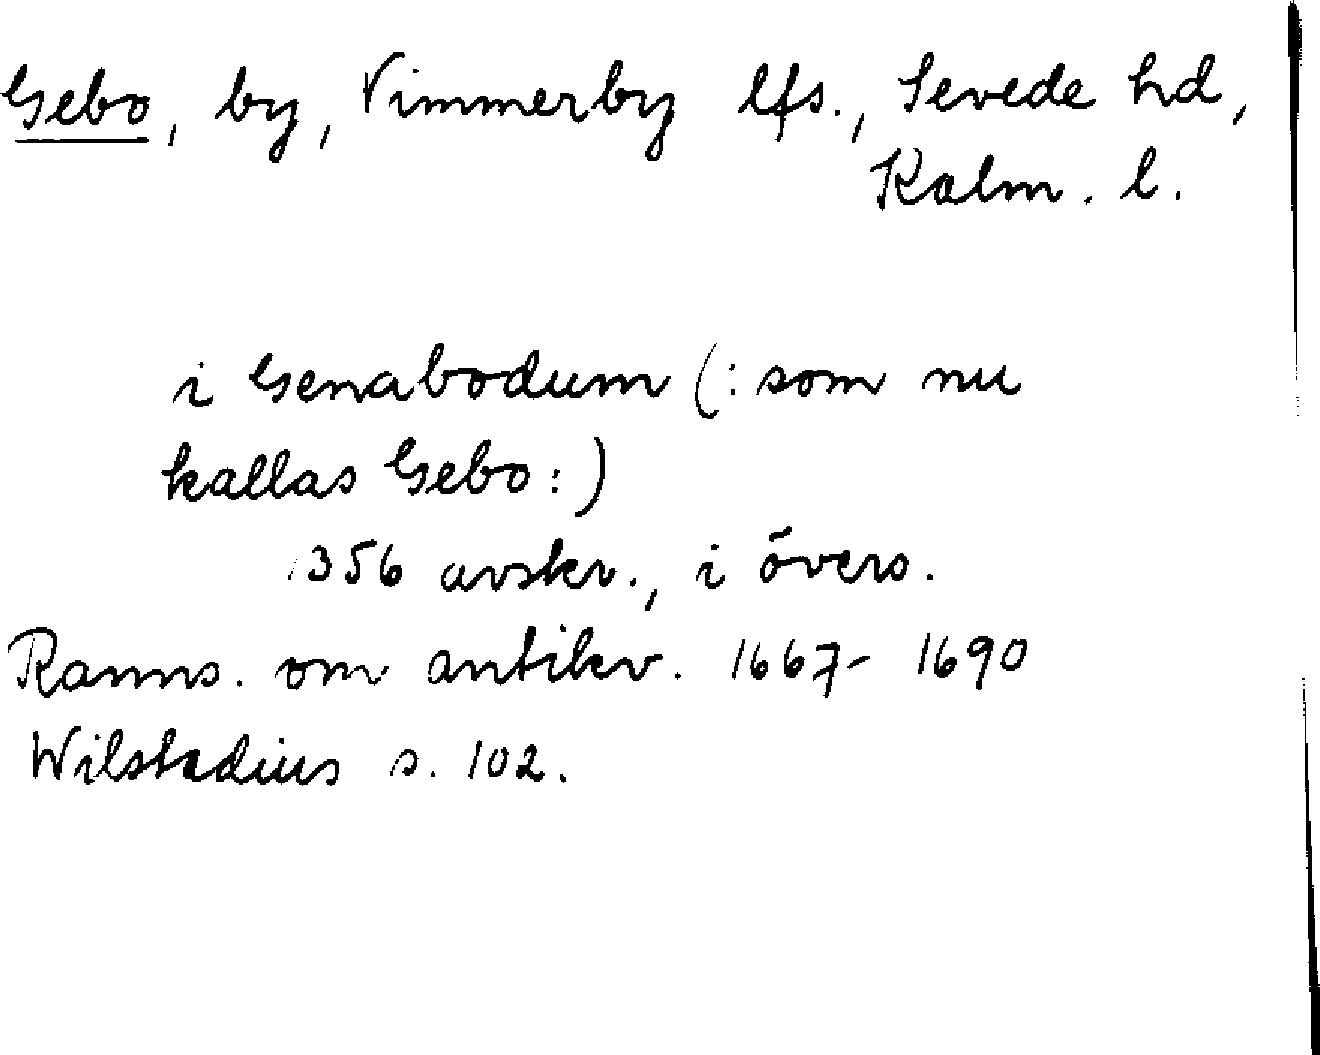 Gebo, by, Vimmerby lfs., Sevede hd,
Kalm. l.
i Genabodum (: som nu
kallas Gebo :)
1356 avskr., i övers.
Ranns. om antikv. 1667-1690
Wilstadius s. 102.